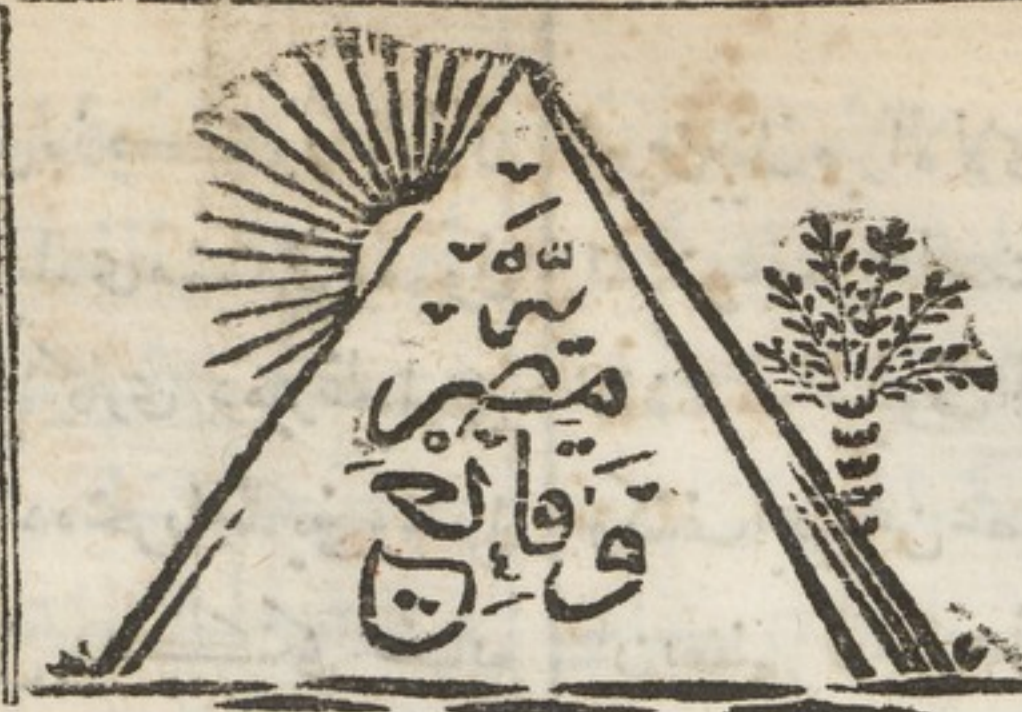 وَقَائع
مصريّه